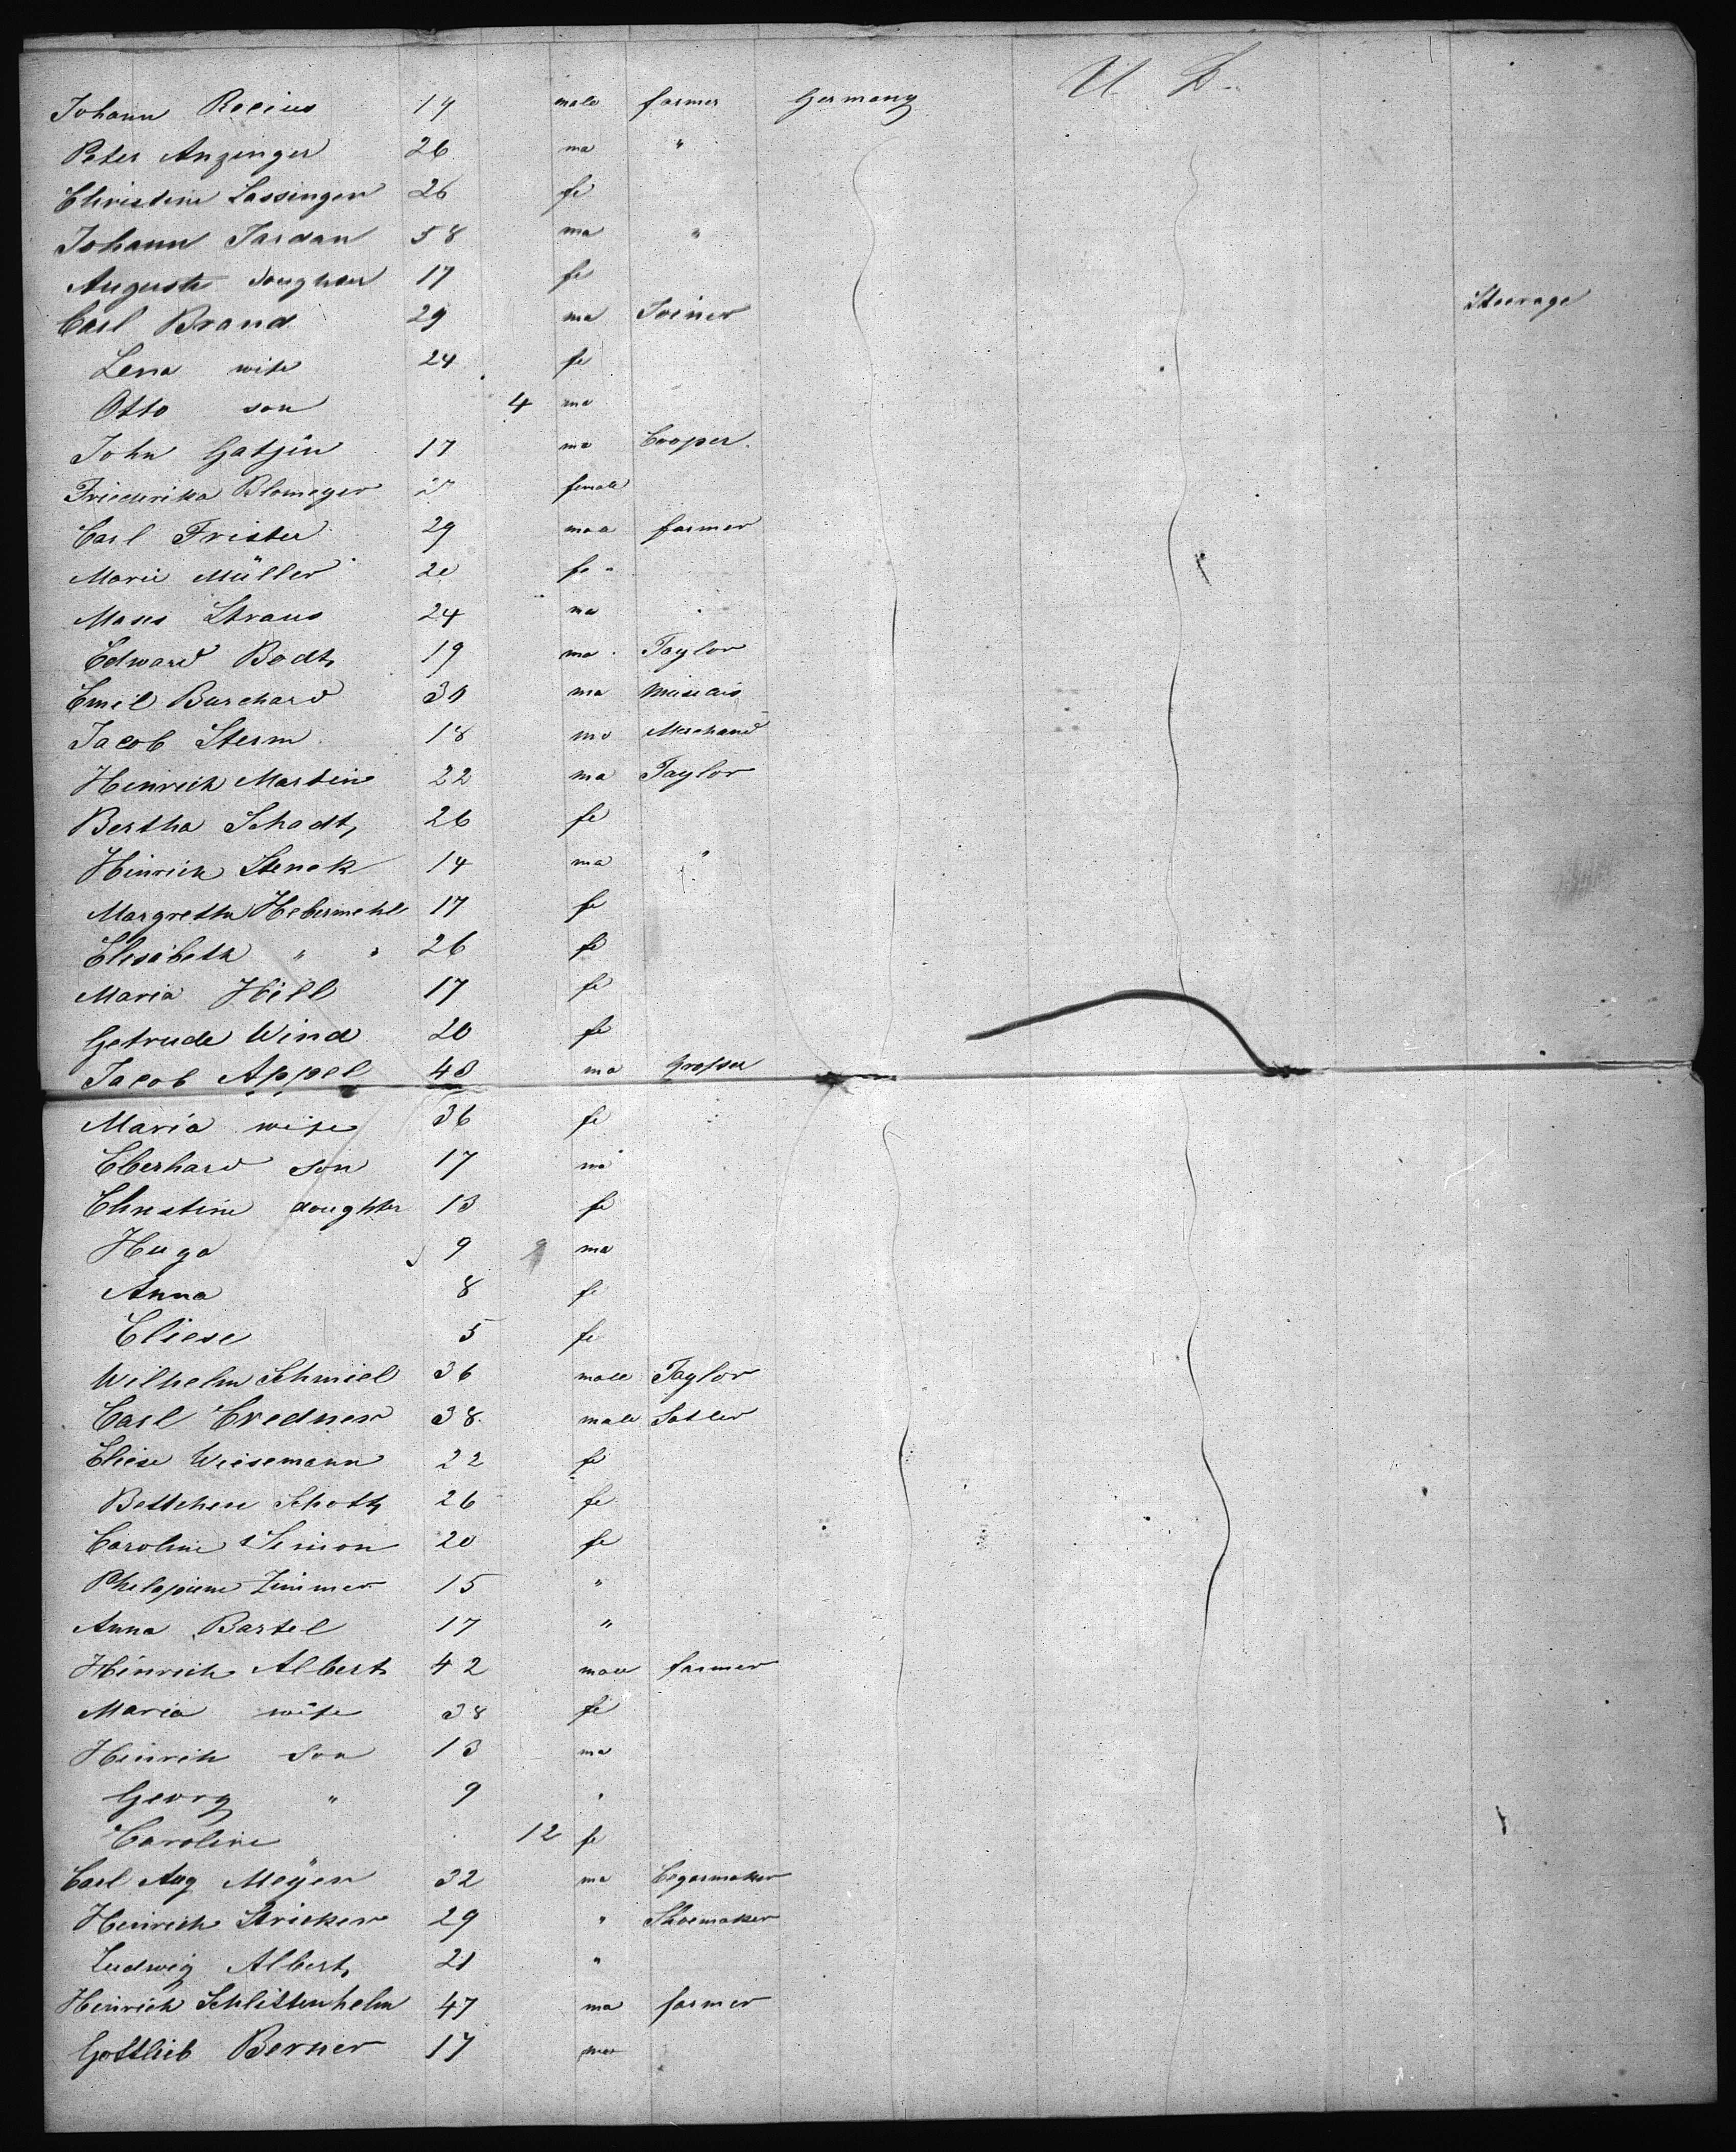 Johann Recius 19 male farmer Germany U. S.
Peter Anzinger 26 ma "
Christine Lassinger 26 fe
Johann Jardan 58 ma "
Auguste doughter 17 fe
Carl Brand 29 ma Joiner Steerage
Lena wife 24 fe
Otto son 4 ma
John Gatjin 17 ma Cooper
Friederika Blomeyer female
Carl Frister 29 maa farmer
Marie Müller 20 fe
Moses Straus 24 ma
Edward Bodt 19 ma Taylor
Emil Burchard 30 ma
Jacob Sterm 18 ma Merchand
Heinrich Martin 22 ma Taylor
Bertha Schadt 26 fe
Hinrich Stenck 14 ma "
Margretha Hebermehl 17 fe
Elisabeth " " 26 fe
Maria Hill 17 fe
Getrude Wind 20 fe
Jacob Appel 48 ma
Maria wife 36 fe
Eberhard son 17 ma
Christine doughter 13 fe
Hugo 9 ma
Anna 8 fe
Eliese 5 fe
Wilhelm Schmiel 36 male Taylor
Carl Credner 38 male Satler
Eliese Wiesemann 22 fe
Bettchen Schott 26 fe
Caroline Simon 20 fe
Zimmer 15 "
Anna Bartel 17 "
Hinrich Albert 42 male farmer
Maria wife 38 fe
Heinrich son 13 ma
Georg " 9 "
Caroline 12 fe
Carl Aug Meÿer 32 ma Cegarmaker
Heinrich Stricker 29 " Shoemaker
Ludwig Albert 21 "
Heinrich Schlittenhelm 47 ma farmer
Gottlieb Berner 17 ma